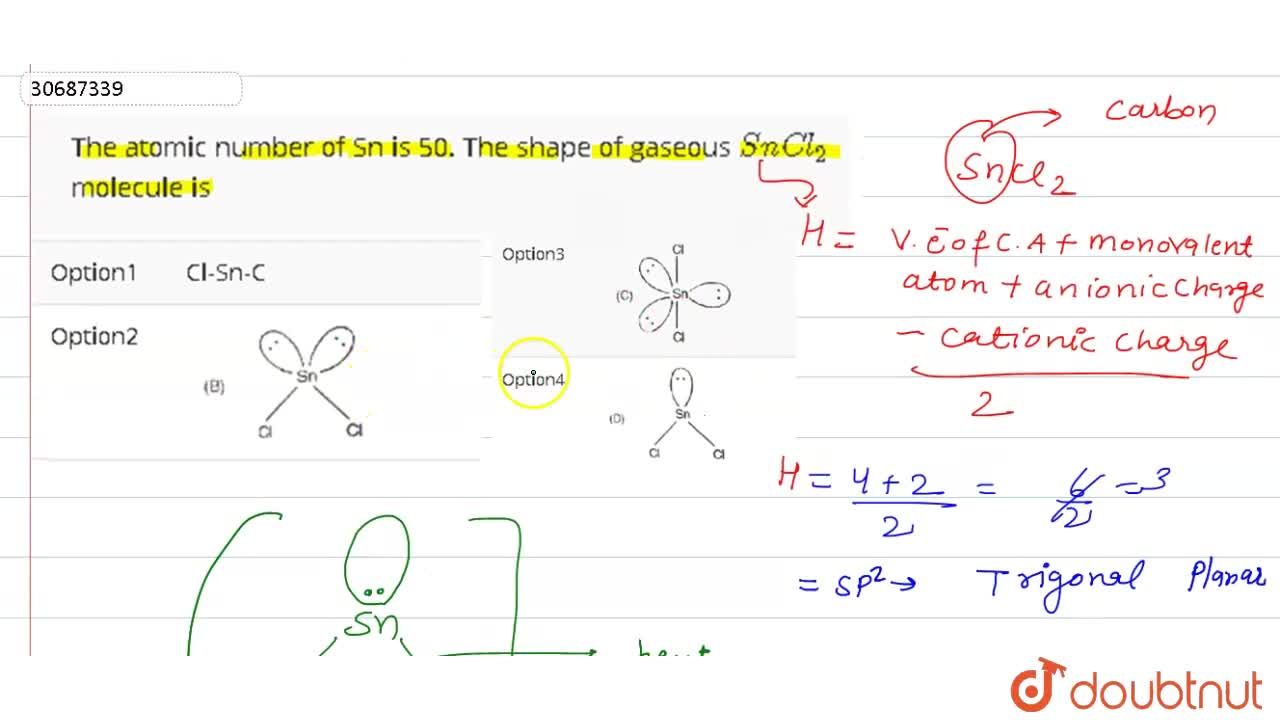 30687339
The atomic number of Sn is 50. The shape of gaseous SnCl₂
molecule is
Option1 Cl-Sn-C
Option2
(B)
Sn
Cl Cl
Option3
Cl
(C) Sn
Cl
Option4
(D) Sn
Cl Cl
Carbon
SnCl₂
H = V. ē of C. A + monovalent
atom + anionic charge
- Cationic charge
2
H = 4+2 = 6 = 3
2 2
= SP² → Trigonal Planar
Sn
bent
doubtnut